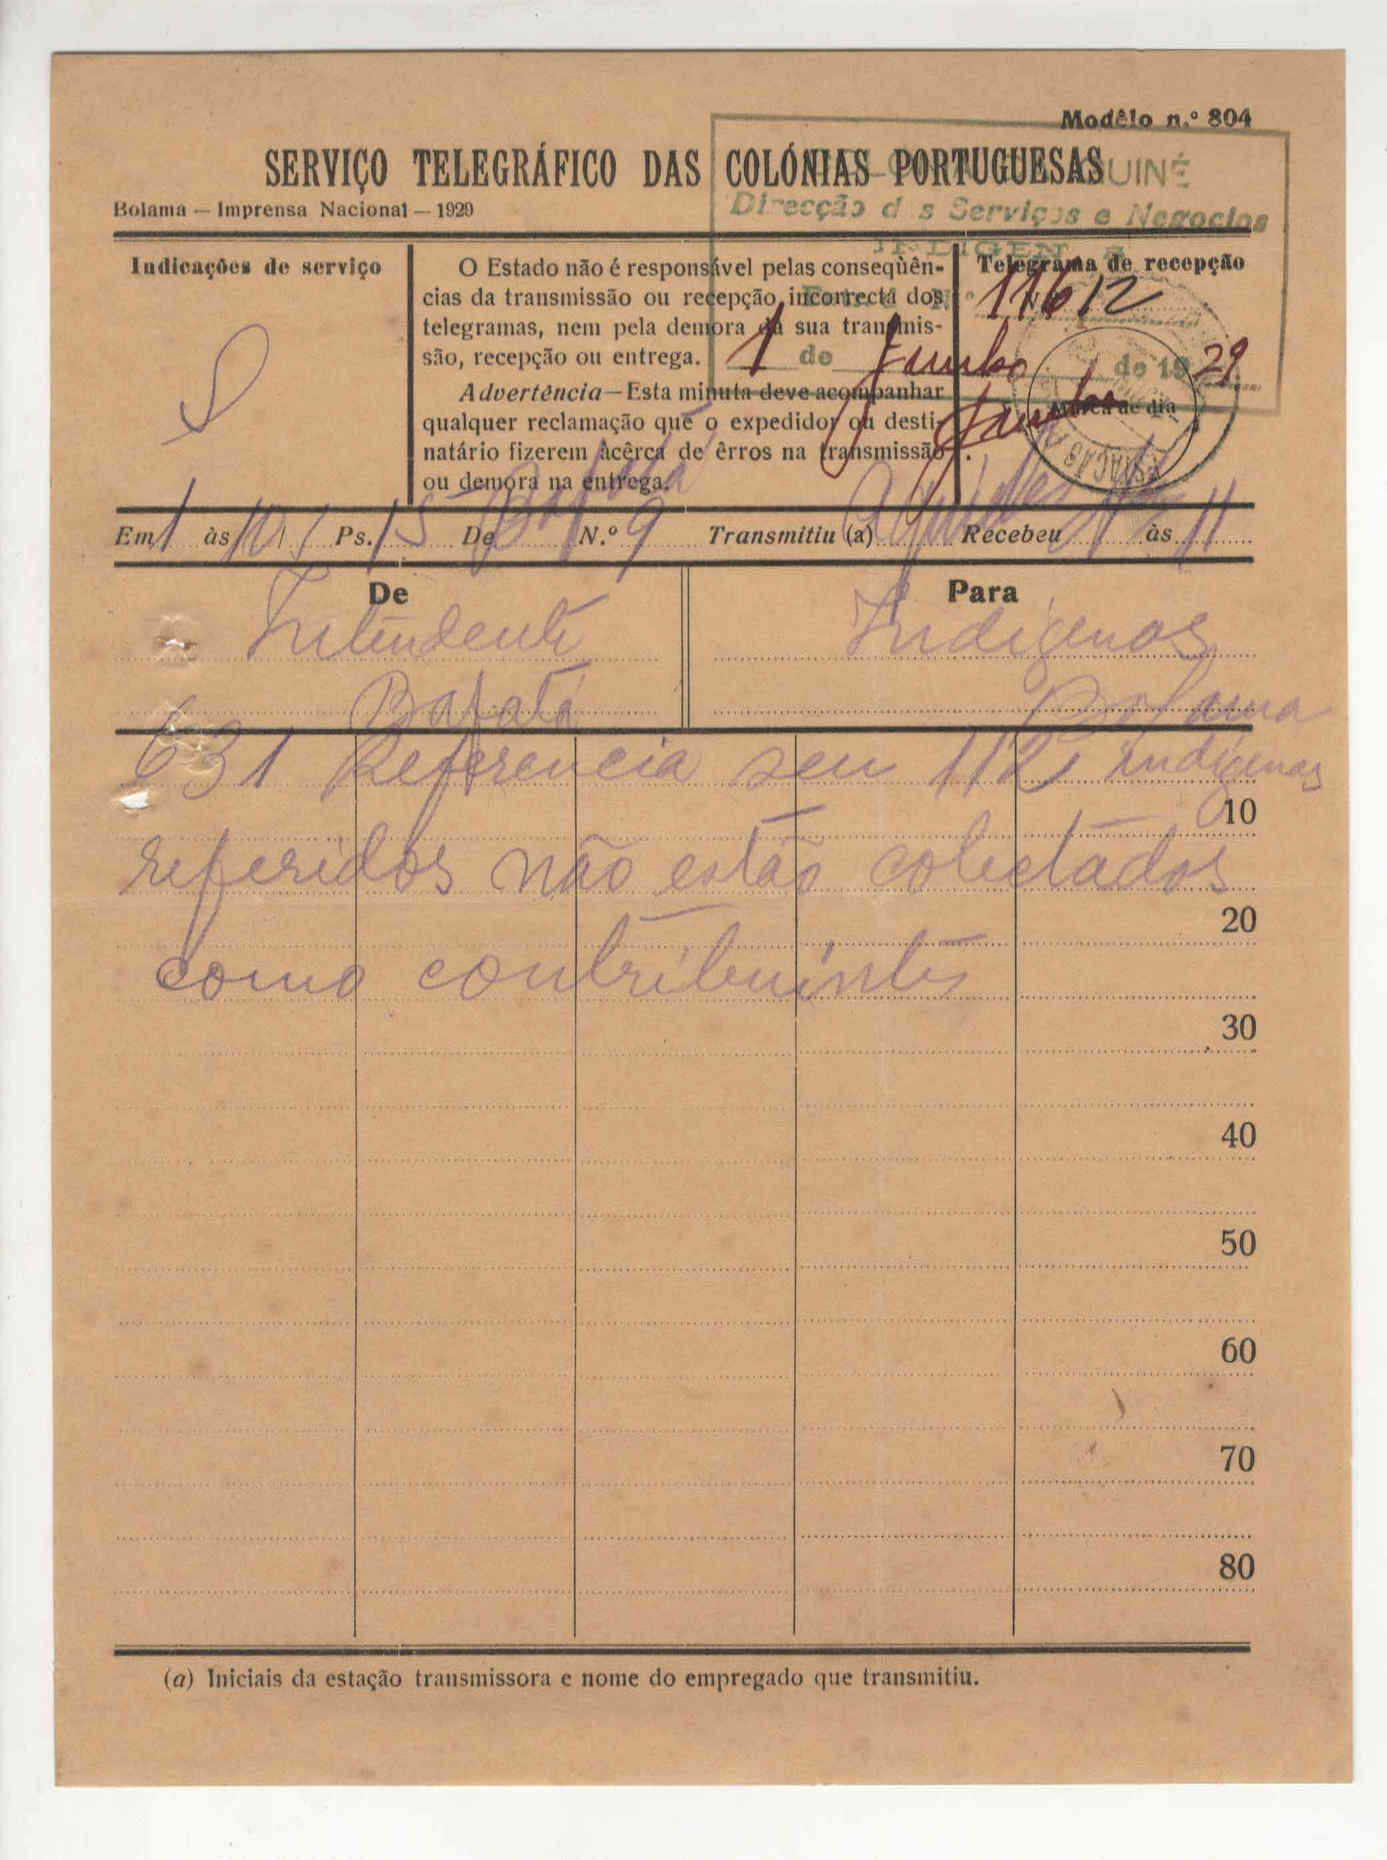 Modêlo n.º 804
SERVIÇO TELEGRÁFICO DAS COLÓNIAS PORTUGUESAS
GUINÉ
Bolama — Imprensa Nacional — 1929
Direcção d s Serviços e Negocios
Indicações de serviço
O Estado não é responsável pelas conseqùên-
cias da transmissão ou recepção incorrecta dos
telegramas, nem pela demora da sua transmis-
são, recepção ou entrega.
Advertência—Esta minuta deve acompanhar
qualquer reclamação que o expedidor ou desti-
natário fizerem àcêrca de êrros na transmissão
ou demora na entrega.
Telegrama de recepção
116/2
1 de Junho de 1929
Marca de dia
ESTAÇÃO
Em 1 às 10 Ps. 15 De Bafatá N.º 9 Transmitiu (a) Recebeu às 11
De
Intendente
Bafatá
Para
Indigenas
Bolama
631 Referencia seu 112 Indigenas
10
referidos não estão colectados
20
como contribuintes
30
40
50
60
70
80
(a) Iniciais da estação transmissora e nome do empregado que transmitiu.